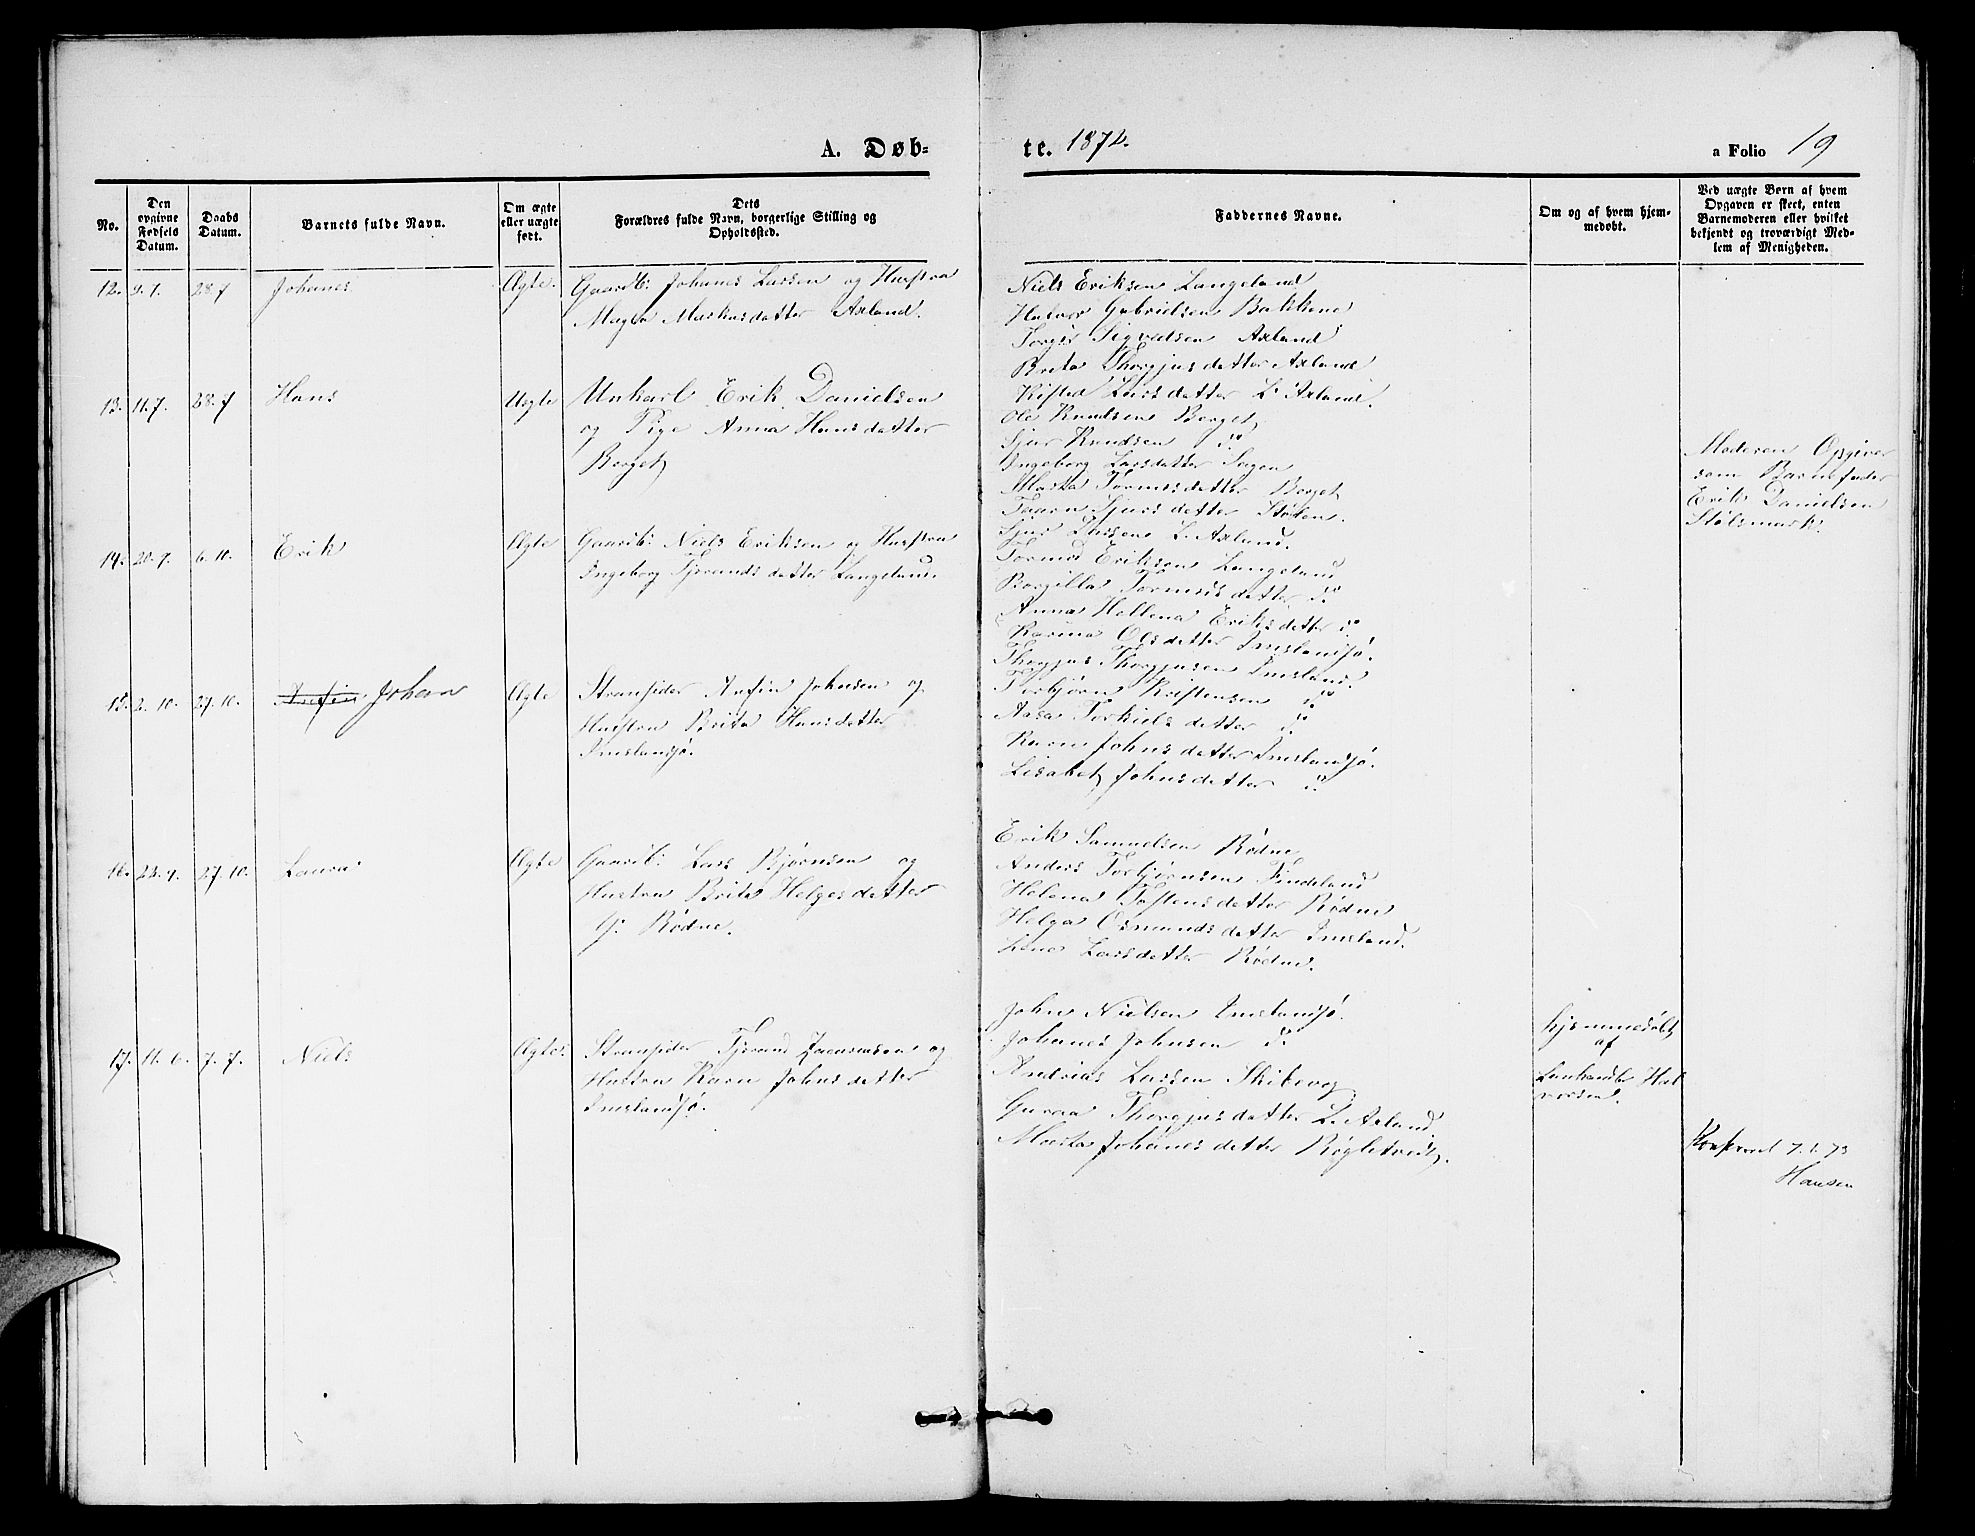 A. Døb-
te. 1872.
a Folio 19
No.
Den
opgivne
Fødsels
Datum.
Daabs
Datum.
Barnets fulde Navn.
Om ægte
eller uægte
født.
Dets
Forældres fulde Navn, borgerlige Stilling og
Opholdssted.
Faddernes Navne.
Om og af hvem hjem-
medøbt.
Ved uægte Børn af hvem
Opgaven er skeet, enten
Barnemoderen eller hvilket
bekjendt og troværdigt Med-
lem af Menigheden.
12. 9.7. 28.7 Johanes Ægte. Gaardb: Johanes Larsen og Hustru
Magla Markusdatter Axland.
Niels Eriksen Langeland
Halvor Gabrielsen Bakkene
Torger Sigvedsen Axland
Brita Thorgjusdatter Axland
Kisted Larsdatter L. Axland.
13. 11.7. 28.7 Hans Uegte Unkarl Erik Danielsen
og Pige Anna Hansdatter
Berget
Ole Knudsen Berget
Sjur Knudsen do
Ingeborg Larsdatter
Marta Tormosdatter Berget
Sjursdatter Stølen.
Moderen Opgiver
som Barnefader
Erik Danielsen
Stølsmark.
14. 20.9. 6.10. Erik Ægte Gaardb: Niels Eriksen og Hustru
Ingeborg Tjerandsdatter Langeland.
Sjur Larsen L. Axland.
Tormod Eriksen Langeland
Borgilla Tormodsdatter do
Anna Hellena Eriksdatter do
Karina Olsdatter Imslandsjø.
15. 2.10. 27.10. Anfin Johan Ægte Strandsider Anfin Johnsen og
Hustru Brita Hansdatter
Imslandsjø.
Thorgjus Thorgjusen Imsland.
Torbjørn Kristensen do
Aasa Torkielsdatter do
Karn Johnsdatter Imslandsjø.
Lisabet Johnsdatter do
16. 23.9. 27.10. Laura Ægte Gaardb: Lars Bjørnsen og
Hustru Brita Helgesdatter
Y. Rødne.
Erik Samuelsen Rødne
Anders Torbjørnsen Findeland
Helena Tostensdatter Rødne
Helga Osmundsdatter Imsland.
Lene Larsdatter Rødne.
17. 11.6. 7.7. Niels Ægte. Strandsider Tjerand og
Hustru Karn Johnsdatter
Imslandsjø.
John Nielsen Imslandsjø.
Johanes Johnsen do
Andreas Larsen Skibevog
Guraa Thorgjusdatter L. Axland
Marta Johanesdatter
hjemmedøbt
af
Lanhandler Hal-
vorsen.
Konfereret 7.1.73
Hansen